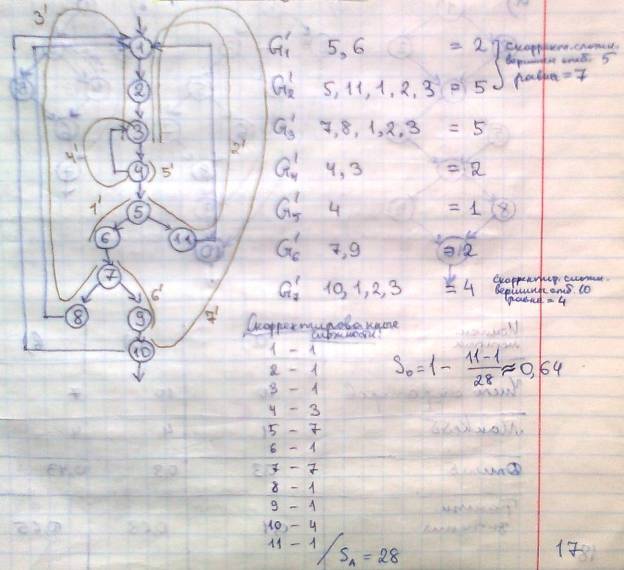 3'
1
2
3
4
4'
5'
2'
1'
5
6
11
7
6'
7'
8
9
10
G'1 5, 6 = 2
G'2 5, 11, 1, 2, 3 = 5
Скоррект. сложн.
вершины отб. 5
равна = 7
G'3 7, 8, 1, 2, 3 = 5
G'4 4, 3 = 2
G'5 4 = 1
G'6 7, 9 = 2
G'7 10, 1, 2, 3 = 4
Скорректир. сложн.
вершины отб. 10
равна = 4
Скорректированные
сложности:
1 - 1
2 - 1
3 - 1
4 - 3
5 - 7
6 - 1
7 - 7
8 - 1
9 - 1
10 - 4
11 - 1
Sa = 28
So = 1 - (11 - 1)/28 ≈ 0,64
17